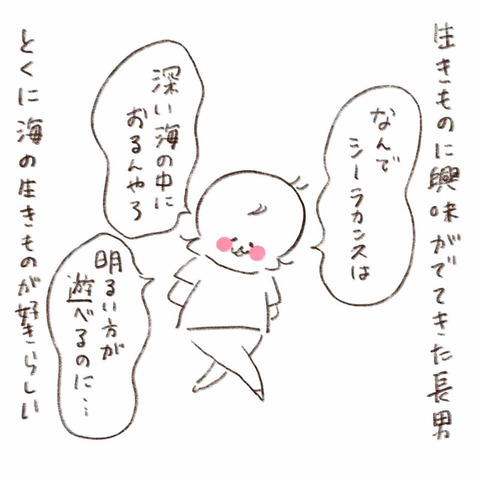 生きものに興味がでてきた長男
なんで
シーラカンスは
深い海の中に
おるんやろ
明るい方が
遊べるのに…
とくに海の生きものが好きらしい